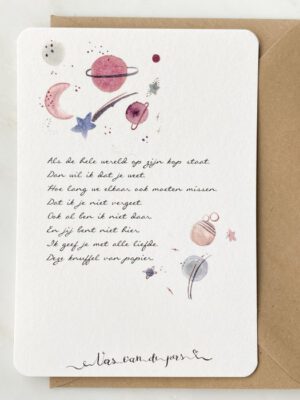 Als de hele wereld op zijn kop staat.
Dan wil ik dat je weet.
Hoe lang we elkaar ook moeten missen.
Dat ik je niet vergeet.
Ook al ben ik niet daar.
En jij bent niet hier.
Ik geef je met alle liefde.
Deze knuffel van papier.
Vers van de pers